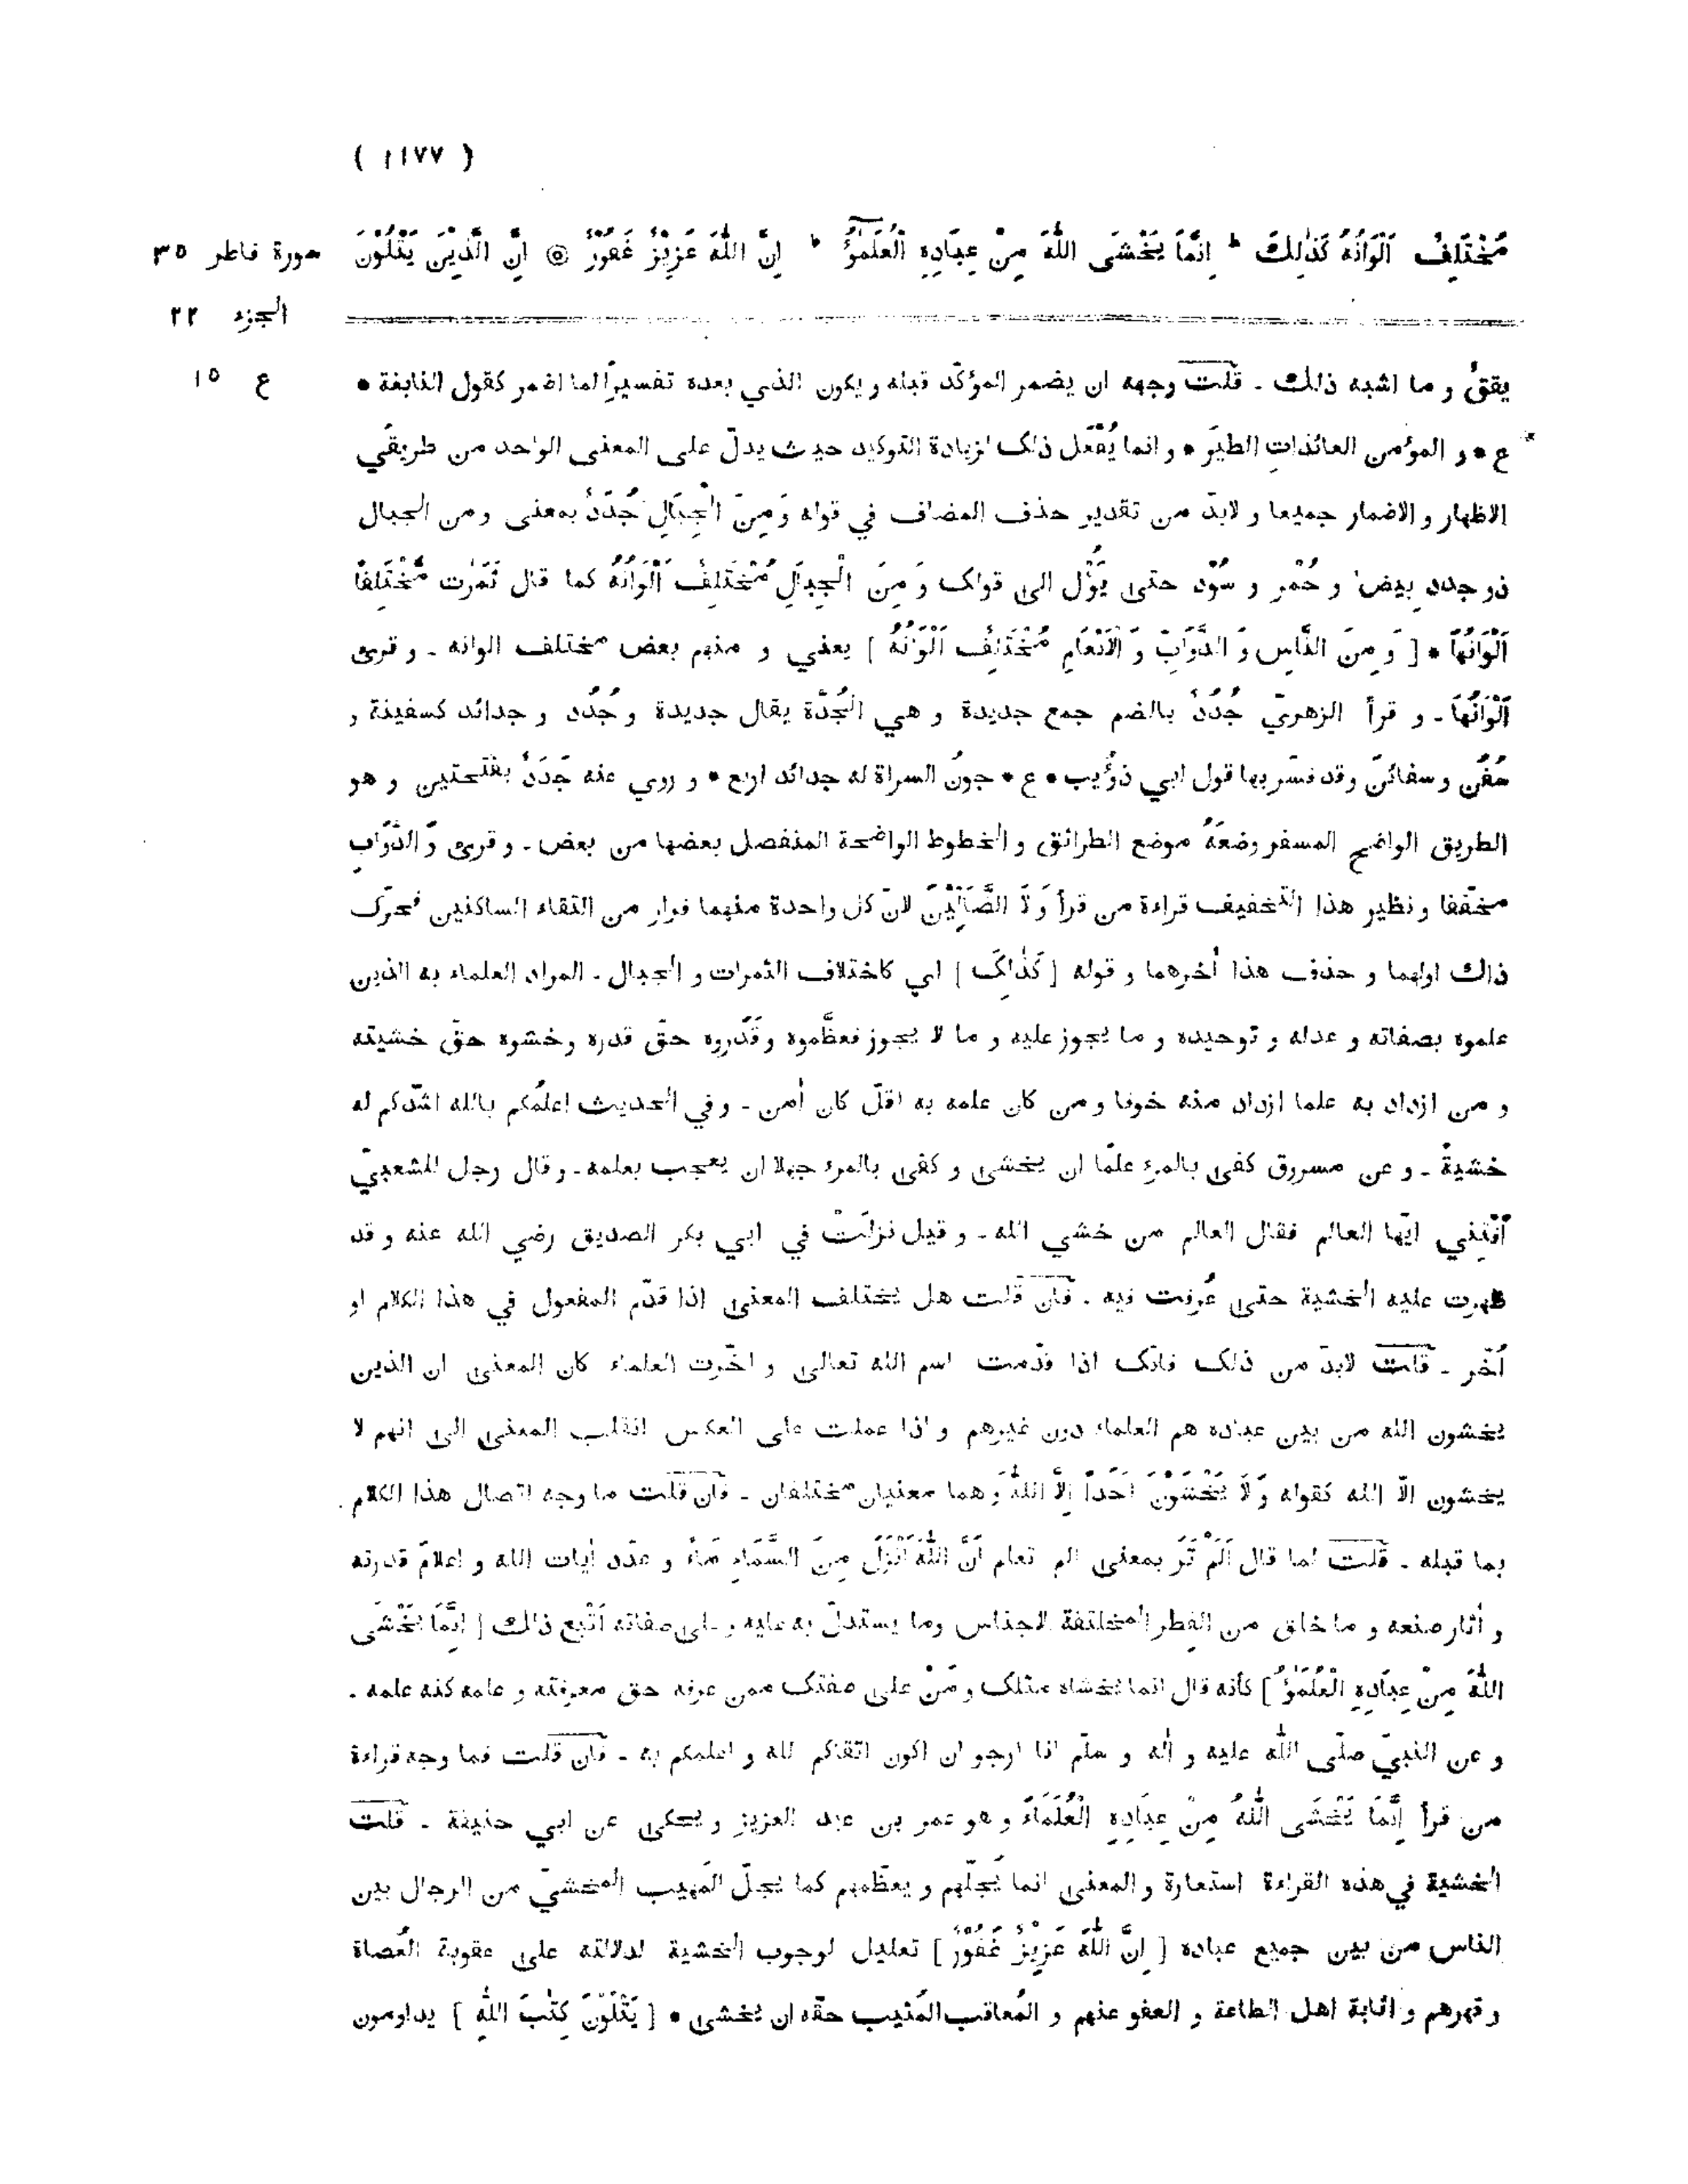 ( ١١٧٧ )
مُخْتَلِفٌ اَلْوَانُهُ كَذٰلِكَ ط اِنَّمَا يَخْشَى اللّٰهَ مِنْ عِبَادِهِ الْعُلَمٰٓؤُ ط اِنَّ اللّٰهَ عَزِيْزٌ غَفُوْرٌ ۞ اِنَّ الَّذِيْنَ يَتْلُوْنَ
سورة فاطر ٣٥
الجزء ٢٢
ع ١٥
يققٌ و ما اشبه ذلك . قلت وجهه ان يضمر المؤكّد قبله و يكون الذي بعده تفسيراً لما اضمر كقول النابغة •
ع • و المؤمن العائذاتِ الطيرَ • و انما يُفْعَل ذلک لزيادة التوكيد حيث يدلّ على المعنى الواحد من طريقَي
الاظهار و الاضمار جميعا و لابدّ من تقدير حذف المضاف في قوله وَمِنَ الْجِبَالِ جُدَدٌ بمعنى و من الجبال
ذو جددٍ بيض و حُمْر و سُوْد حتى يَؤُل الى قولک وَ مِنَ الْجِبَالِ مُخْتَلِفٌ اَلْوَانُهُ كما قال ثَمَرٰت مُّخْتَلِفًا
اَلْوَانُهَا • [ وَ مِنَ النَّاسِ وَ الدَّوَابِّ وَ الْاَنْعَامِ مُخْتَلِفٌ اَلْوَانُهُ ] يعني و منهم بعض مختلف الوانه . و قرئ
اَلْوَانُهَا . و قرأ الزهريّ جُدُدٌ بالضم جمع جديدة و هي الجُدّة يقال جديدة و جُدُد و جدائد كسفينة و
سُفُن و سفائن وقد فسّر بها قول ابي ذؤيب • ع • جونُ السراة له جدائد اربع • و روي عنه جَدَدٌ بفتحتين و هو
الطريق الواضح المسفر وضعَهُ موضع الطرائق و الخطوط الواضحة المنفصل بعضها من بعض . و قرئ وَ الدَّوَابِ
مخفّفا و نظير هذا التخفيف قراءة من قرأ وَ لَا الضَّأَلِّيْنَ لانّ كل واحدة منهما فرار من التقاء الساكنين فحرّک
ذاك اولهما و حذف هذا أخرهما و قوله [ كَذٰلِكَ ] اي كاختلاف الثمرات و الجبال . المراد العلماء به الذين
علموه بصفاته و عدله و توحيده و ما يجوز عليه و ما لا يجوز فعظّموه و قدّروه حقّ قدره و خشوه حقّ خشيته
و من ازداد به علما ازداد منه خوفا و من كان علمه به اقلّ كان أمن . و في الحديث اعلمُكم بالله اشدّكم له
خشيةً . و عن مسروق كفى بالمرء علمًا ان يخشى و كفى بالمرء جهلا ان يعجب بعلمه . و قال رجل للشعبيّ
أفْتِني ايّها العالم فقال العالم من خشي الله . و قيل نزلَتْ في ابي بكر الصديق رضي الله عنه و قد
ظهرت عليه الخشية حتى عُرِفت فيه . فان قلت هل يختلف المعنى اذا قدّم المفعول في هذا الكلام او
أخّر . قلت لابدّ من ذلک فانّک اذا قدّمت اسم الله تعالى و اخّرت العلماء كان المعنى ان الذين
يخشون الله من بين عباده هم العلماء دون غيرهم و اذا عملت على العكس انقلب المعنى الى انهم لا
يخشون الّا الله كقوله وَلَا يَخْشَوْنَ اَحَدًا اِلَّا اللّٰهَ وهما معنيان مختلفان . فان قلت ما وجه اتصال هذا الكلام
بما قبله . قلت لما قال اَلَمْ تَرَ بمعنى الم تعلم اَنَّ اللّٰهَ اَنْزَلَ مِنَ السَّمَاءِ مَاءً و عدّد أيات الله و اعلامَ قدرته
و أثار صنعه و ما خلق من الفِطر المختلفة الاجناس وما يستدلّ به عليه و على صفاته اَتْبع ذلك [ اِنَّمَا يَخْشَى
اللّٰهَ مِنْ عِبَادِهِ الْعُلَمٰؤُ ] كأنه قال انما يخشاه مثلک و مَنْ على صفتک ممن عرفه حق معرفته و علمه كنه علمه .
و عن النبيّ صلّى اللّٰه عليه و أله و سلّم انا ارجو ان اكون اتقاكم لله و اعلمكم به . فان قلت فما وجه قراءة
من قرأ اِنَّمَا يَخْشَى اللّٰهُ مِنْ عِبَادِهِ الْعُلَمَاءَ و هو عمر بن عبد العزيز و يحكى عن ابي حنيفة . قلت
الخشية في هذه القراءة استعارة و المعنى انما يُجلّهم و يعظّمهم كما يُجلّ المَهيب المخشيّ من الرجال بين
الناس من بين جميع عباده [ اِنَّ اللّٰهَ عَزِيْزٌ غَفُوْرٌ ] تعليل لوجوب الخشية لدلالته على عقوبة العُصاة
و قهرهم و اثابة اهل الطاعة و العفو عنهم و المُعاقب المُثيب حقّه ان يخشى • [ يَتْلُوْنَ كِتٰبَ اللّٰهِ ] يداومون